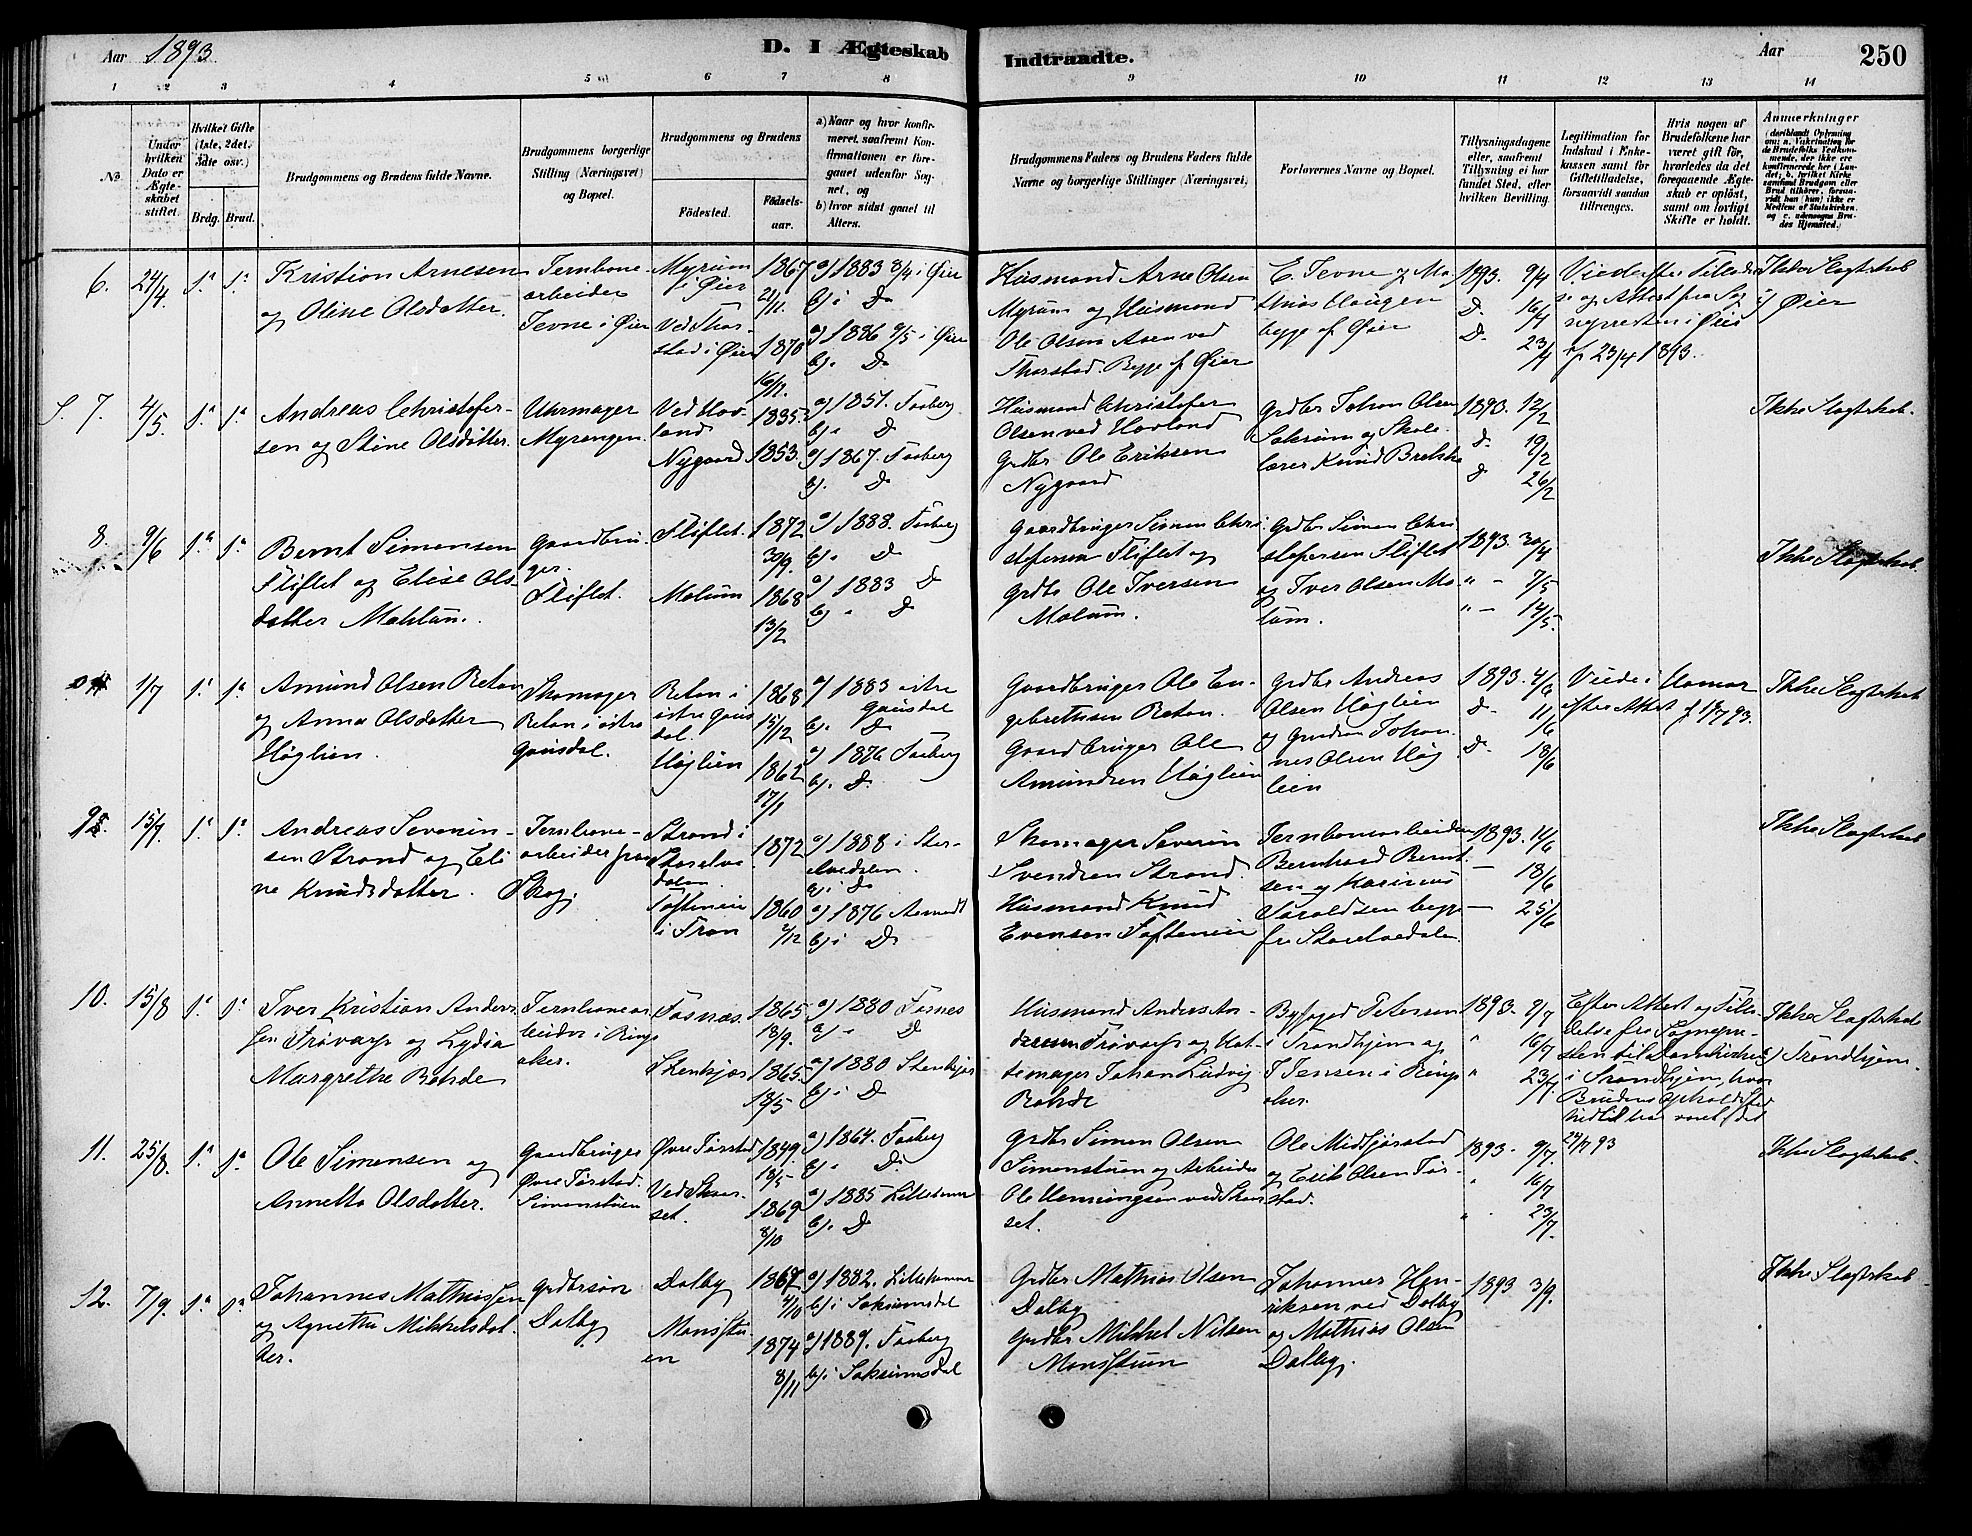 Aar 1893
D. I Ægteskab
Indtraadte.
Aar
250
1 2 3 4 5 6 7 8 9 10 11 12 13 14
No.
Under hvilken Dato er Ægteskabet stiftet.
Hvilket Gifte (1ste, 2det, 3die osv.)
Brdg. Brud.
Brudgommens og Brudens fulde Navne.
Brudgommens borgerlige Stilling (Næringsvei) og Bopæl.
Brudgommens og Brudens
Födested.
Födselsaar.
a) Naar og hvor konfirmeret, saafremt Konfirmationen er foregaaet udenfor Sognet, og
b) hvor sidst gaaet til Alters.
Brudgommens Faders og Brudens Faders fulde Navne og borgerlige Stillinger (Næringsvei).
Forlovernes Navne og Bopæl.
Tillysningsdagene eller, saafremt Tillysning ei har fundet Sted, efter hvilken Bevilling.
Legitimation for Indskud i Enkekassen samt for Giftetilladelse, forsaavidt saadan tiltrænges.
Hvis nogen af Brudefolkene har været gift för, hvorledes da det foregaaende Ægteskab er oplöst, samt om lovligt Skifte er holdt.
Anmærkninger
6. 24/4. 1ª 1ª
Kristian Arnesen
og Oline Olsdatter.
Jernbane-
arbeider
Jevne i Øier
Myrum
i Øier
Ved Thor-
stad i Øier
1867
21/11.
1870
16/12.
a) 1883 8/4 i Øier
b) i D
a) 1886 9/5 i Øier
b) . D
Husmand Arne Olsen
Myrum og Husmand
Ole Olsen Aasen ved
Thorstad. Begge af Øier
E. Jevne og Ma-
thias Haugen
begge af Øier
1893. 9/4
D. 16/4
D. 23/4
Viede efter Tilladel-
se og Attest fra Sog-
nepresten i Øier
af 23/4 1893.
Ikke Slagtskab
Øier
S. 7. 4/5. 1ª 1ª
Andreas Christofer-
sen og Stine Olsdatter.
Uhrmager
Myrengen.
Ved Hov-
land
Nygaard
1835.
1853.
a) 1851. Faaberg
b) . D
a) 1867. Faaberg
b) . D
Husmand Christofer
Olsen ved Hovland
Grdbr Ole Eriksen
Nygaard
Grdbr Johan Olsen
Saksum og Skole-
lærer Knud
1893. 12/2
d. 19/2
d 26/2
Ikke Slagtskab.
8. 9/6 1ª 1ª
Bernt Simensen
Fliflet og Elise Ols
datter Mohlum.
Gaardbru-
ger.
Fliflet.
Fliflet.
Molum
1872
30/9.
1868
13/2
a) 1888. Faaberg
b) . D
a) 1883 D
b) . D
Gaardbruger Simen Chri-
stofersen Fliflet og
Grdbr Ole Iversen
Molum.
Grdbr Simen Chri-
stofersen Fliflet
og Iver Olsen Mo-
lum.
1893. 30/4
" - 7/5
" - 14/5.
Ikke Slagtskab.
1/7 1ª 1ª
Amund Olsen Roton
og Anna Olsdatter
Høglien.
Skomager
Roton i østre
Gausdal.
Roton i
østre Gaus
dal.
Høglien
1868
15/12
1862
17/1
a) 1883 østre
Gausdal
b) . D
a) 1876 Faaberg
b) . D.
Gaardbruger Ole En-
gebrethsen Roton.
Gaardbruger Ole
Amundsen Høglien
Grdbr Andreas
Olsen Høglien
og Grdsøn Johan-
nes Olsen Høg
lien
1893. 4/6
D. 11/6
D. 18/6
Viede i Hamar
efter Attest af 1/7 93.
Ikke Slagtskab
9. 15/7. 1ª 1ª
Andreas Severin-
sen Strand og Eli-
ne Knudsdatter.
Jernbane-
arbeider fra
Skog.
Strand i
Storelve
dalen.
Toftemoen
i Fron
1872
1860
2/12
a) 1888 i Stor-
elvedalen.
b) . D
a) 1876
b) i D
Skomager Severin
Svendsen Strand.
Husmand Knud
Evensen
Jernbanearbeiderne
Bernhard Bernt-
sen og Karinus
Haraldsen begge
fra Storelvedalen
1893. 11/6
— 18/6
— 25/6
Ikke Slagtskab
10. 15/8 1ª 1ª
Iver Kristian Anders-
sen Frøvarp og Lydia
Margrethe Rohde
Jernbanear-
beider i Ring-
aker.
Fosnæs.
Stenkjær
1865
13/9.
1865
18/5
a) 1880 Fosnes
b) . D
a) 1880 Stenkjær
b) i D
Husmand Anders An-
dersen Frøvarp og Hat-
temager Johan Ludvig
Rohde
Byfoged Petersen
i Trondhjem og
J Jensen i Ring-
aker.
1893. 9/7
" 16/7
" 23/7.
Efter Attest og Tilla-
delse fra Sognepre-
sten til Domkirken
i Trondhjem, hvor
Brudens Opholdsted
hidtil har været, dat
24/7 93
Ikke Slagtskab
c) Trondhjem.
11. 25/8. 1ª 1ª
Ole Simensen og
Annette Olsdatter.
Gaardbruger
Øvre Jørstad.
Simenstuen
Øvre Jørstad
Ved Skur-
set.
1849.
18/5
1869
8/10
a) 1864. Faaberg
b) . D.
a) 1885 Lillehammer
b) . D
Grdbr Simen Olsen
Simenstuen og Arbeider
Ole Henningsen ved Skur
set.
Ole Midtjørstad
og Erik Olsen Jør-
stad.
1893. 9/7.
" 16/7
" 23/7.
Ikke Slagtskab.
12. 7/9. 1ª 1ª
Johannes Mathiassen
og Agnethe Mikkelsdat-
ter.
Grdbrsøn
Dalby
Dalby
Monsstu-
en
1867
4/10
1874
8/11
a) 1882. Lillehammer
b) . i Saksumsdal
a) 1889. Faaberg
b) . i Saksumsdal
Grdbr Mathias Olsen
Dalby
Grdbr Mikkel Nilsen
Monsstuen
Johannes Hen-
riksen ved Dalby
og Mathias Olsen
Dalby.
1893 3/9.
Ikke Slagtskab